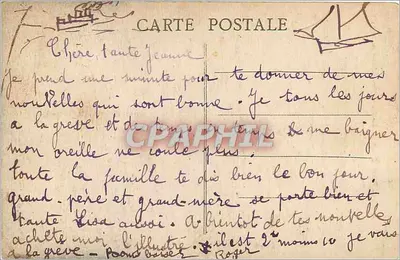 CARTE POSTALE
Chère tante Jeanne
je prend une minute pour te donner de mes
nouvelles qui sont bonne. Je tous les jours
a la greve et de temps en temps me baigner
mon oreille ne coule plus.
toute la famille te dis bien le bon jour.
grand-père et grand-mère se porte bien et
tante Lisa aussi. A bientot de tes nouvelles
achète moi l'illustre. il est 2h moins 10 je vais
a la greve - bons baiser Roger
CPAPHIL.COM